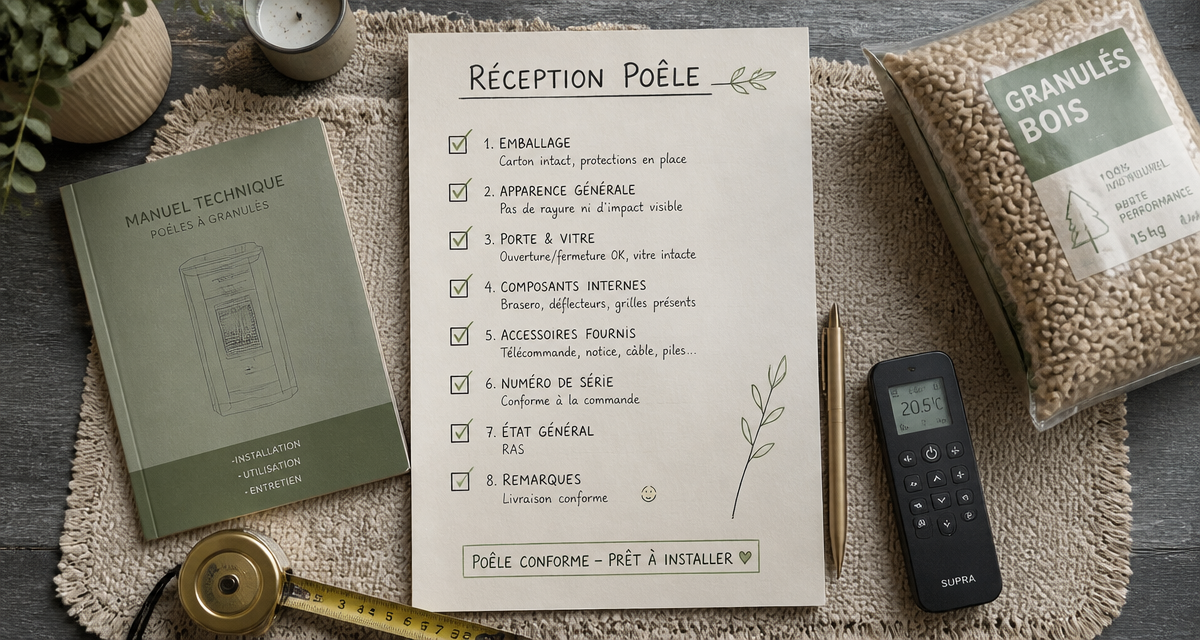 RÉCEPTION POÊLE
1. EMBALLAGE
Carton intact, protections en place
2. APPARENCE GÉNÉRALE
Pas de rayure ni d'impact visible
3. PORTE & VITRE
Ouverture/fermeture OK, vitre intacte
4. COMPOSANTS INTERNES
Brasero, déflecteurs, grilles présents
5. ACCESSOIRES FOURNIS
Télécommande, notice, câble, piles...
6. NUMÉRO DE SÉRIE
Conforme à la commande
7. ÉTAT GÉNÉRAL
RAS
8. REMARQUES
Livraison conforme
POÊLE CONFORME – PRÊT À INSTALLER
MANUEL TECHNIQUE
POÊLES À GRANULÉS
-INSTALLATION
-UTILISATION
-ENTRETIEN
GRANULÉS
BOIS
100%
PERFORMANCE
15kg
20.5°C
SUPRA
3 4 5 6 7 8